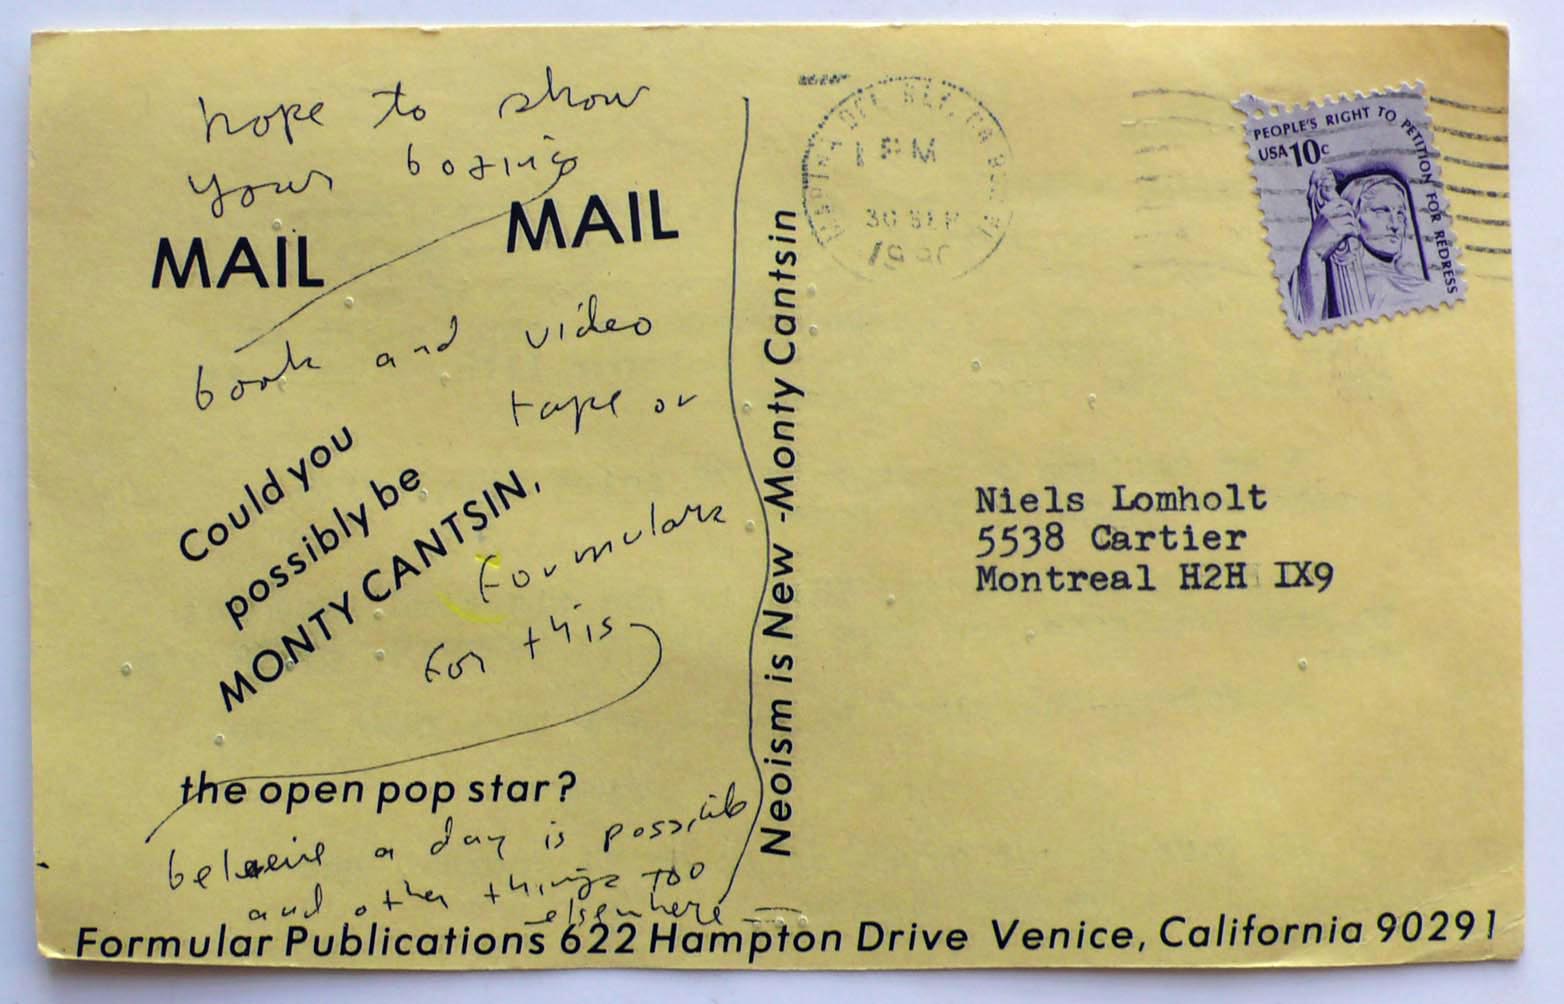 hope to show
your boxing
MAIL MAIL
book and video
tape or
Could you
possibly be
MONTY CANTSIN,
Formulars
for this
the open pop star?
a day is possible
and other things too
elsewhere
Neoism is New -Monty Cantsin
Formular Publications 622 Hampton Drive Venice, California 90291
MARINA DEL REY, CA
PM
30 SEP
PEOPLE'S RIGHT TO PETITION FOR REDRESS
USA 10c
Niels Lomholt
5538 Cartier
Montreal H2H IX9